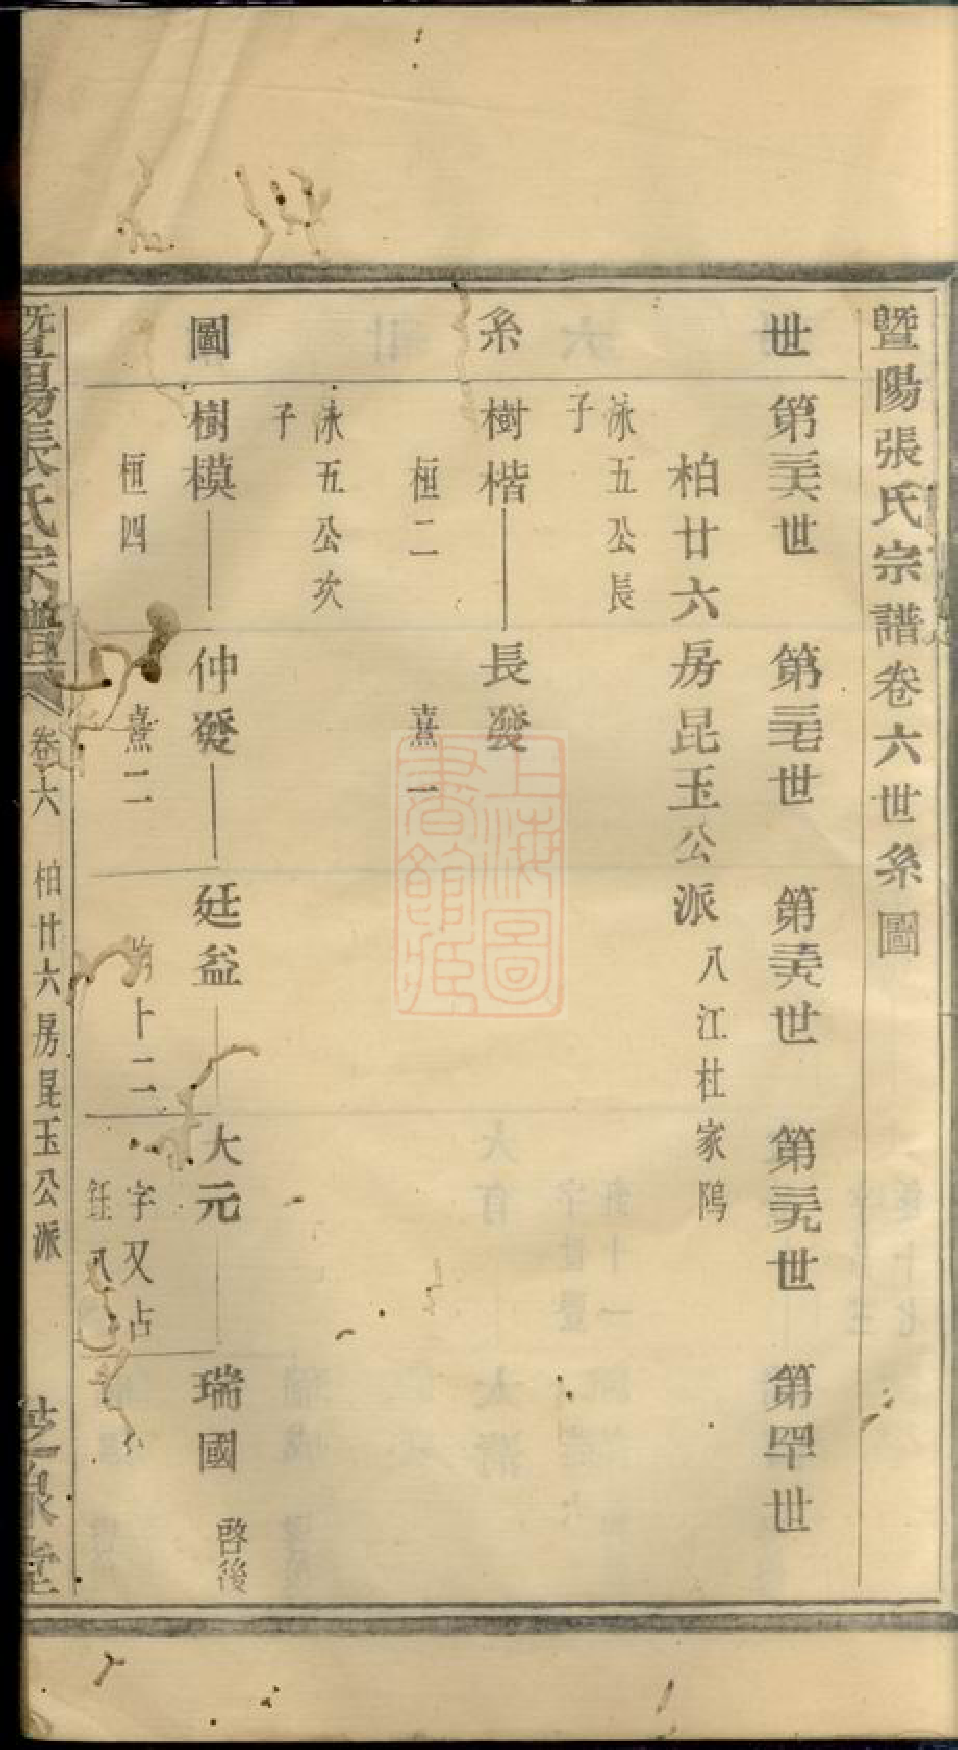 暨陽張氏宗譜卷六世系圖
世系圖
第三六世 第三七世 第三八世 第三九世 第四十世
柏廿六房昆玉公派 八江杜家隖
泳五公長子
樹楷 長發
桓二 熹一
泳五公次子
樹模 仲發 廷益 大元 瑞國 啓後
桓四 熹二 十二 字又占 鈺八
暨陽張氏宗譜 卷六 柏廿六房昆玉公派
上海圖書館藏